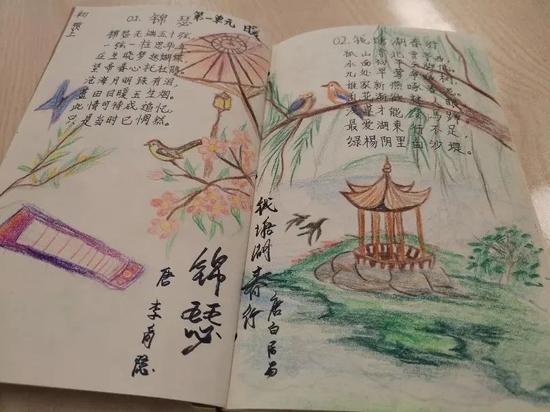 01. 锦瑟
第一单元
锦瑟无端五十弦,
一弦一柱思华年。
庄生晓梦迷蝴蝶,
望帝春心托杜鹃。
沧海月明珠有泪,
蓝田日暖玉生烟。
此情可待成追忆,
只是当时已惘然。
锦瑟
唐 李商隐
02. 钱塘湖春行
孤山寺北贾亭西,
水面初平云脚低。
几处早莺争暖树,
谁家新燕啄春泥。
乱花渐欲迷人眼,
浅草才能没马蹄。
最爱湖东行不足,
绿杨阴里白沙堤。
钱塘湖春行
唐 白居易